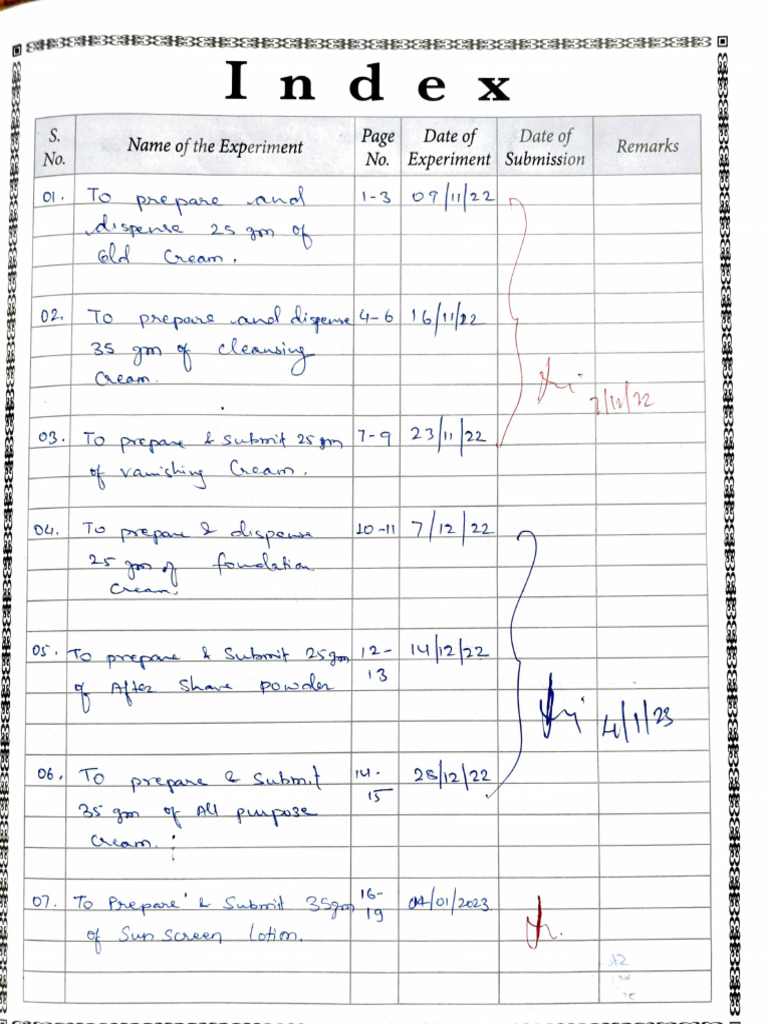 Index
S. No. Name of the Experiment Page No. Date of Experiment Date of Submission Remarks
01. To prepare and 1-3 09/11/22
dispense 25 gm of
Cold Cream.
02. To prepare and dispense 4-6 16/11/22
35 gm of cleansing
Cream.
7/12/22
03. To prepare & submit 25 gm 7-9 23/11/22
of vanishing Cream.
04. To prepare & dispense 10-11 7/12/22
25 gm of foundation
Cream.
05. To prepare & Submit 25gm 12- 14/12/22
13
of After Shave powder
4/1/23
06. To prepare & Submit 14- 28/12/22
15
35 gm of All purpose
cream.
07. To Prepare & Submit 35gm 16- 04/01/2023.
19
of Sun Screen Lotion.